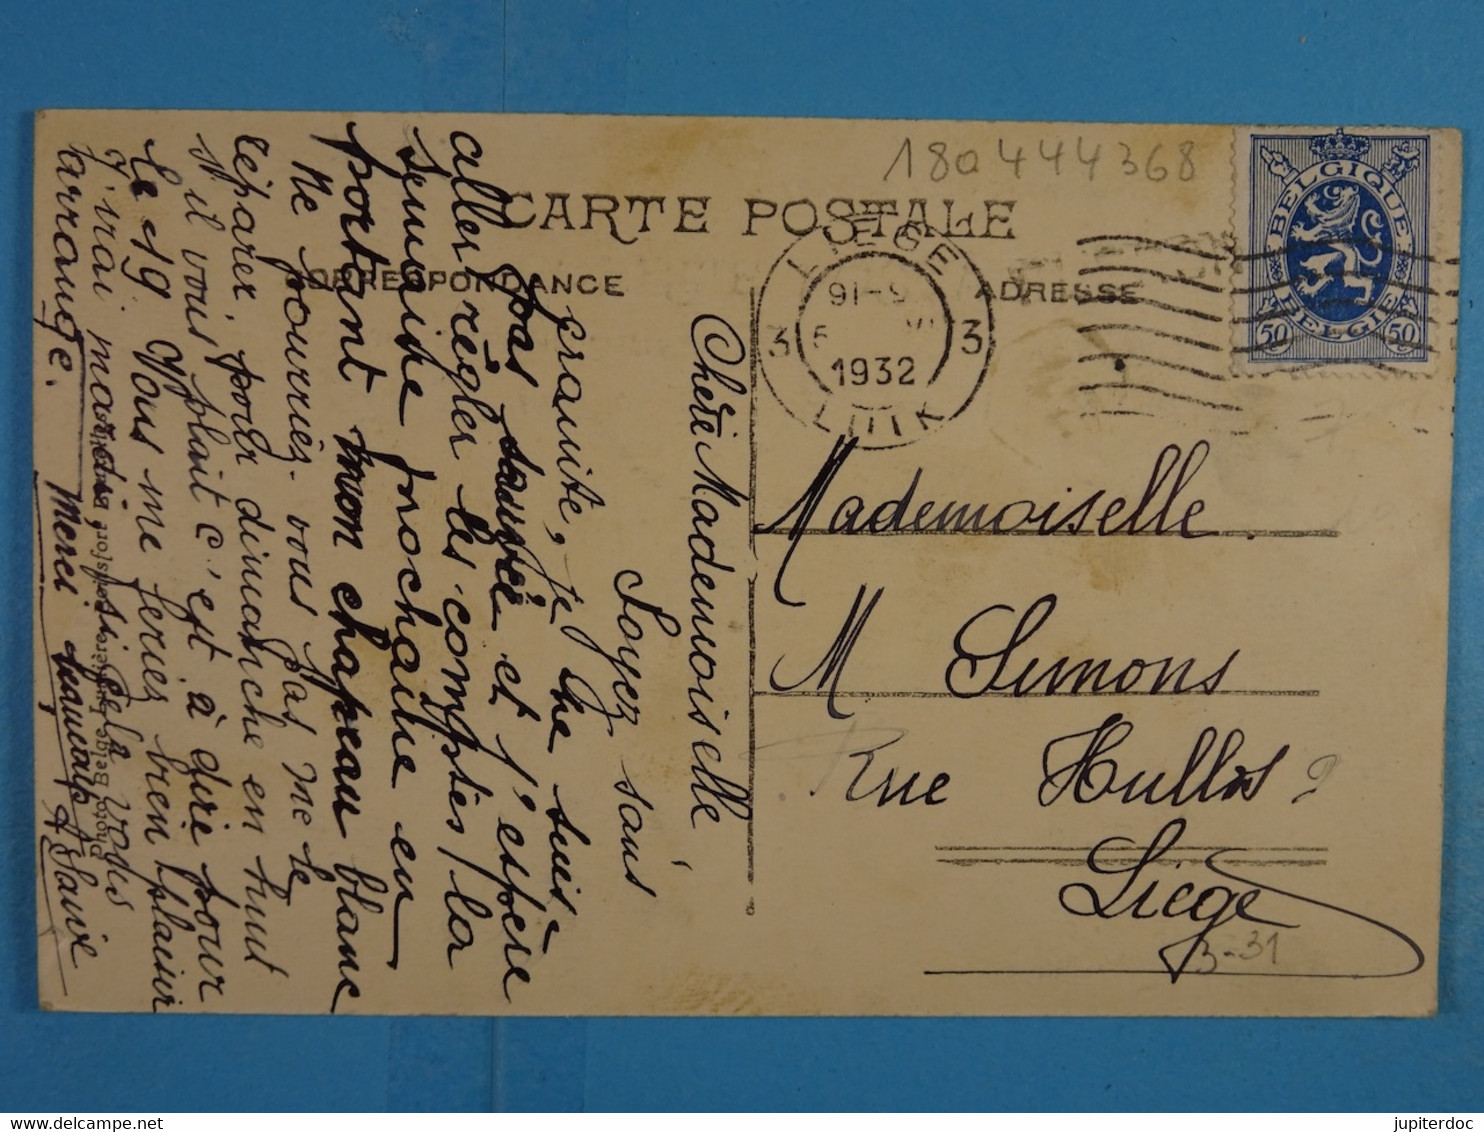 180444368
CARTE POSTALE
CORRESPONDANCE
ADRESSE
LIEGE
3
3
1932
LUIK
BELGIQUE
BELGIE
50
50
Mademoiselle
M Simons
Rue Hullos
Liège
3-31
Chère Mademoiselle
Soyez sans
crainte, je me suis
pas sauvée et j'espère
aller régler les comptes la
semaine prochaine en
portant mon chapeau blanc
Ne pourriez-vous pas me le
réparer pour dimanche en huit
s'il vous plait c'est à dire pour
le 19 Vous me feriez bien plaisir
j'irai mardi, si cela vous
arrange. Merci
jupiterdoc